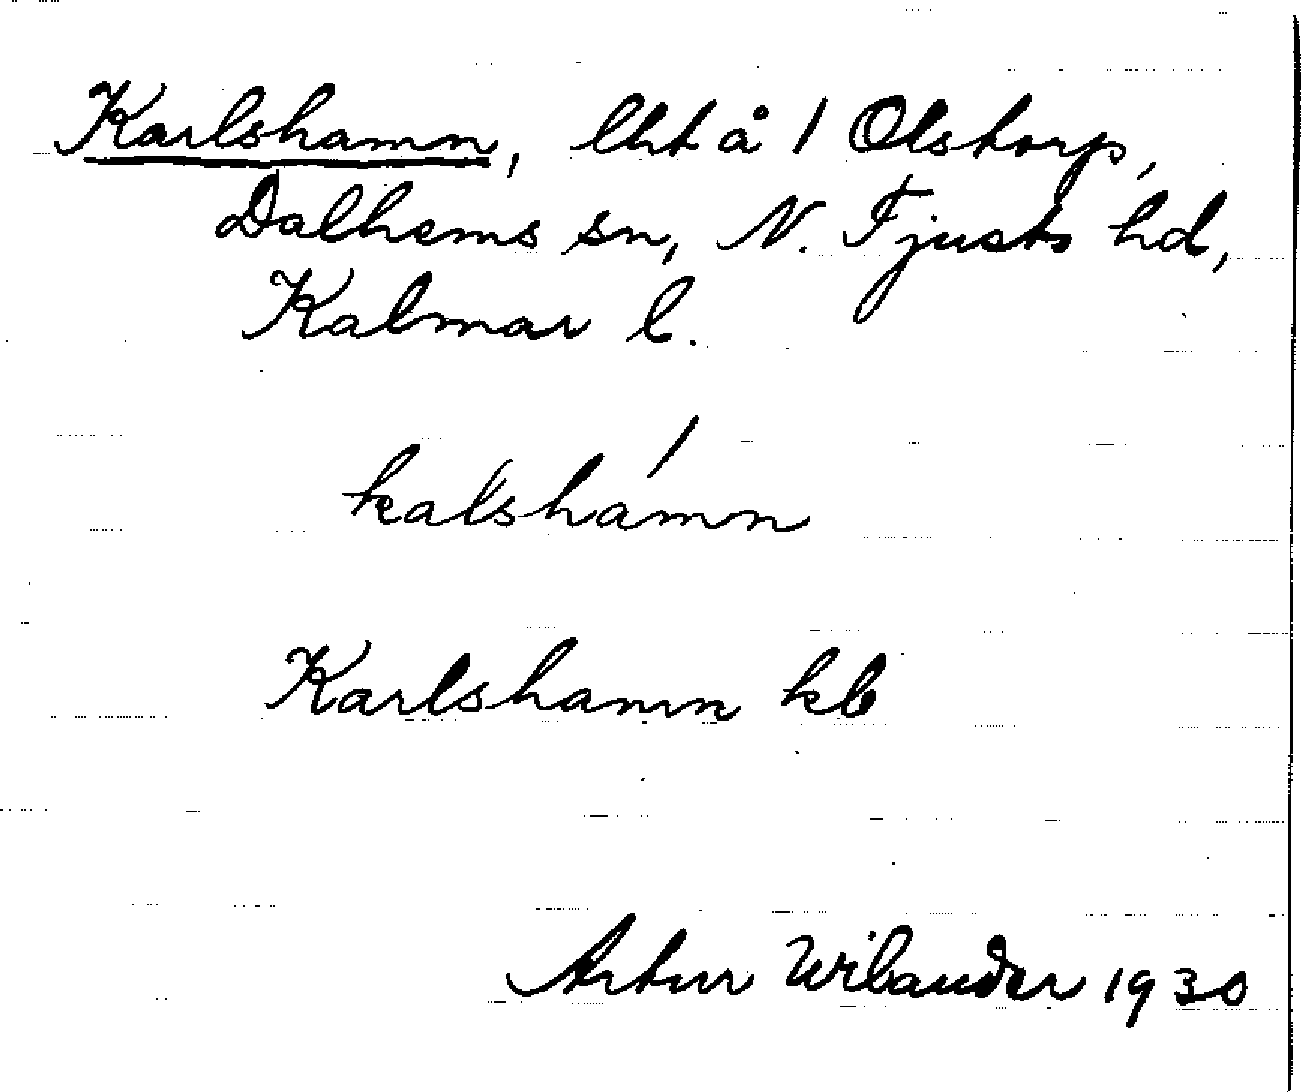 Karlshamn, lht å 1 Olstorp,
Dalhems sn, N. Tjusts hd,
Kalmar l.
kalshamn
Karlshamn kb
Artur Wilander 1930